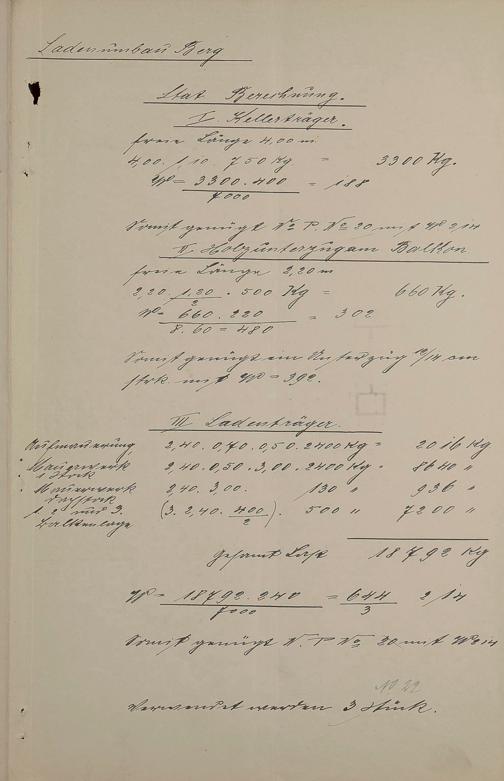 Ladenumbau Berg
Stat. Berechnung.
I. Kellerträger.
freie Länge 4,00 m
4,00 . 1,10 . 750 Kg = 3300 Kg.
W = 3300 . 400 = 188
7000
Somit genügt N. P. No 20 mit W 214
II. Holzunterzug am Balkon
freie Länge 2,20 m
2,20 . 1,20 . 500 Kg = 660 Kg.
2
W = 660 . 220 = 302
8 . 60 = 480
Somit genügt ein Unterzug 12/14 cm
strk. mit W = 392.
III Ladenträger.
Aufmauerung 2,40 . 0,70 . 0,50 . 2400 Kg = 2016 Kg
Mauerwerk 2,40 . 0,50 . 3,00 . 2400 Kg = 8640 "
1 Stock
Mauerwerk 2,40 . 3,00 . 130 " 936 "
Dachstock
1. 2 und 3. (3 . 2,40 . 400) . 500 " 7200 "
2
Balkenlage
Gesamt Last 18792 Kg
W = 18792 . 240 = 644 214
7000 3
Somit genügt N. P. No 20 mit W 214
No 22
Verwendet werden 3 Stück.